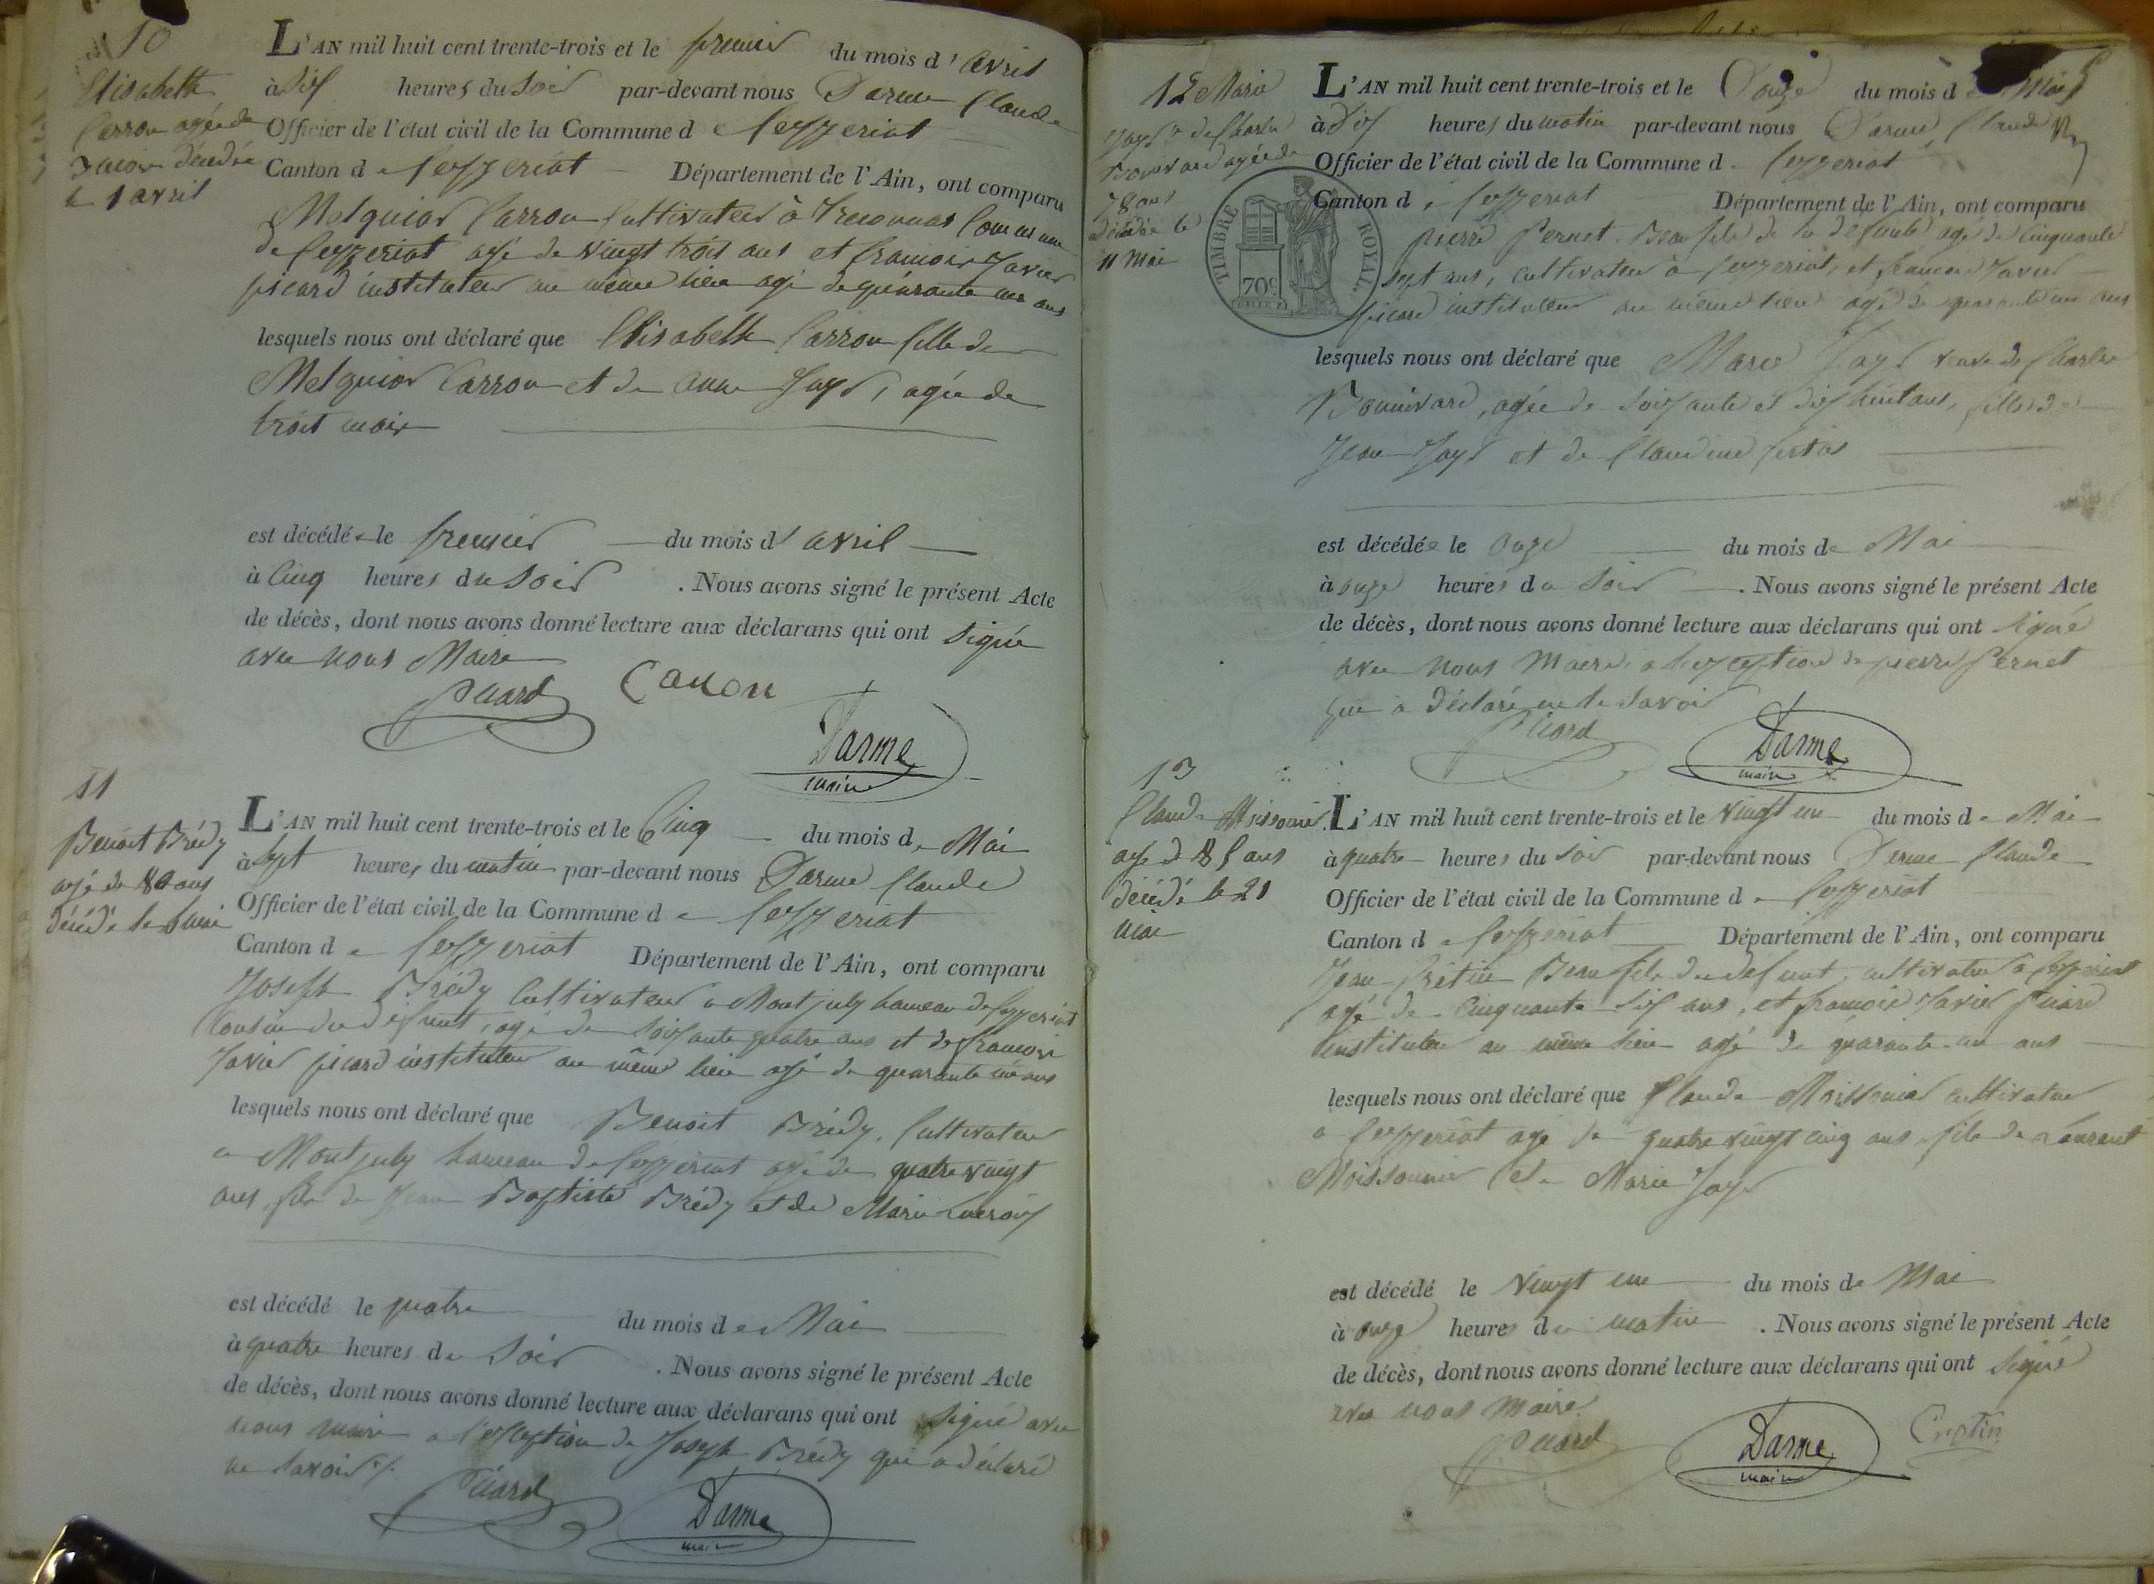 10
Elisabeth
Carron agée de
3 mois décédée
le 1 avril
L'AN mil huit cent trente-trois et le premier du mois d'avril
à six heures du soir par-devant nous Darme Claude
Officier de l'état civil de la Commune de Ceyzeriat
Canton de Ceyzeriat Département de l'Ain, ont comparu
Melquior Carron Cultivateur à Treconnas Commune
de Ceyzeriat agé de vingt trois ans et francois Xavier
picard instituteur au même lieu agé de quarante un ans
lesquels nous ont déclaré que Elisabeth Carron fille de
Melquior Carron et de anne Jayr, agée de
trois mois
est décédée le premier du mois d'avril
à Cinq heures du Soir . Nous avons signé le présent Acte
de décès, dont nous avons donné lecture aux déclarans qui ont Signé
avec nous Maire
Picard Caron
Darme
maire
11
Benoit Brédy
agé de 80 ans
décédé le mai
L'AN mil huit cent trente-trois et le Cinq du mois de Mai
à Sept heures du matin par-devant nous Darme Claude
Officier de l'état civil de la Commune de Ceyzeriat
Canton de Ceyzeriat Département de l'Ain, ont comparu
Joseph Brédy Cultivateur a Montjuly hameau de Ceyzeriat
Cousin du défunt, agé de soixante quatre ans et de francois
Xavier picard instituteur au même lieu agé de quarante un ans
lesquels nous ont déclaré que Benoit Brédy, Cultivateur
a Montjuly hameau de Ceyzeriat agé de quatre vingt
ans fils de Jean Baptiste Brédy et de Marie
est décédé le quatre du mois de Mai
à quatre heures du Soir . Nous avons signé le présent Acte
de décès, dont nous avons donné lecture aux déclarans qui ont Signé avec
nous maire a l'exception de Joseph Brédy qui a déclaré
ne Savoir
Picard Darme
maire
12 Marie
Jayr ve de Charles
Bonivard agée de
78 ans
Décédée le
11 Mai
TIMBRE ROYAL
70c
L'AN mil huit cent trente-trois et le Douze du mois de Mai
à Dix heures du matin par-devant nous Darme Claude
Officier de l'état civil de la Commune de Ceyzeriat
Canton de Ceyzeriat Département de l'Ain, ont comparu
pierre Pernet Beau fils de la défunte agé de Cinquante
sept ans, cultivateur à Ceyzeriat, et francois Xavier
picard instituteur au même lieu agé de quarante un ans
lesquels nous ont déclaré que Marie Jayr veuve de Charles
Bonnivard, agée de Soixante et dix huit ans, fille de
Jean Jayr et de Claudine
est décédée le onze du mois de Mai
à onze heures du Soir . Nous avons signé le présent Acte
de décès, dont nous avons donné lecture aux déclarans qui ont signé
avec nous Maire a l'exception de pierre Pernet
qui a déclaré ne le Savoir
Picard Darme
maire
13
Claude Moissonnier
agé de 85 ans
décédé le 21
mai
L'AN mil huit cent trente-trois et le vingt un du mois de Mai
à quatre heures du soir par-devant nous Derme Claude
Officier de l'état civil de la Commune de Ceyzeriat
Canton de Ceyzeriat Département de l'Ain, ont comparu
Jean Crétin Beau fils du defunt, cultivateur à Ceyzeriat
agé de Cinquante Six ans, et francois Xavier Picard
instituteur au même lieu agé de quarante un ans
lesquels nous ont déclaré que Claude Moissonnier cultivateur
a Ceyzeriat agé de quatre vingt cinq ans, fils de Laurent
Moissonnier et de Marie Jayr
est décédé le vingt un du mois de Mai
à onze heures du matin . Nous avons signé le présent Acte
de décès, dont nous avons donné lecture aux déclarans qui ont Signé
avec nous Maire
Picard Darme Cretin
maire